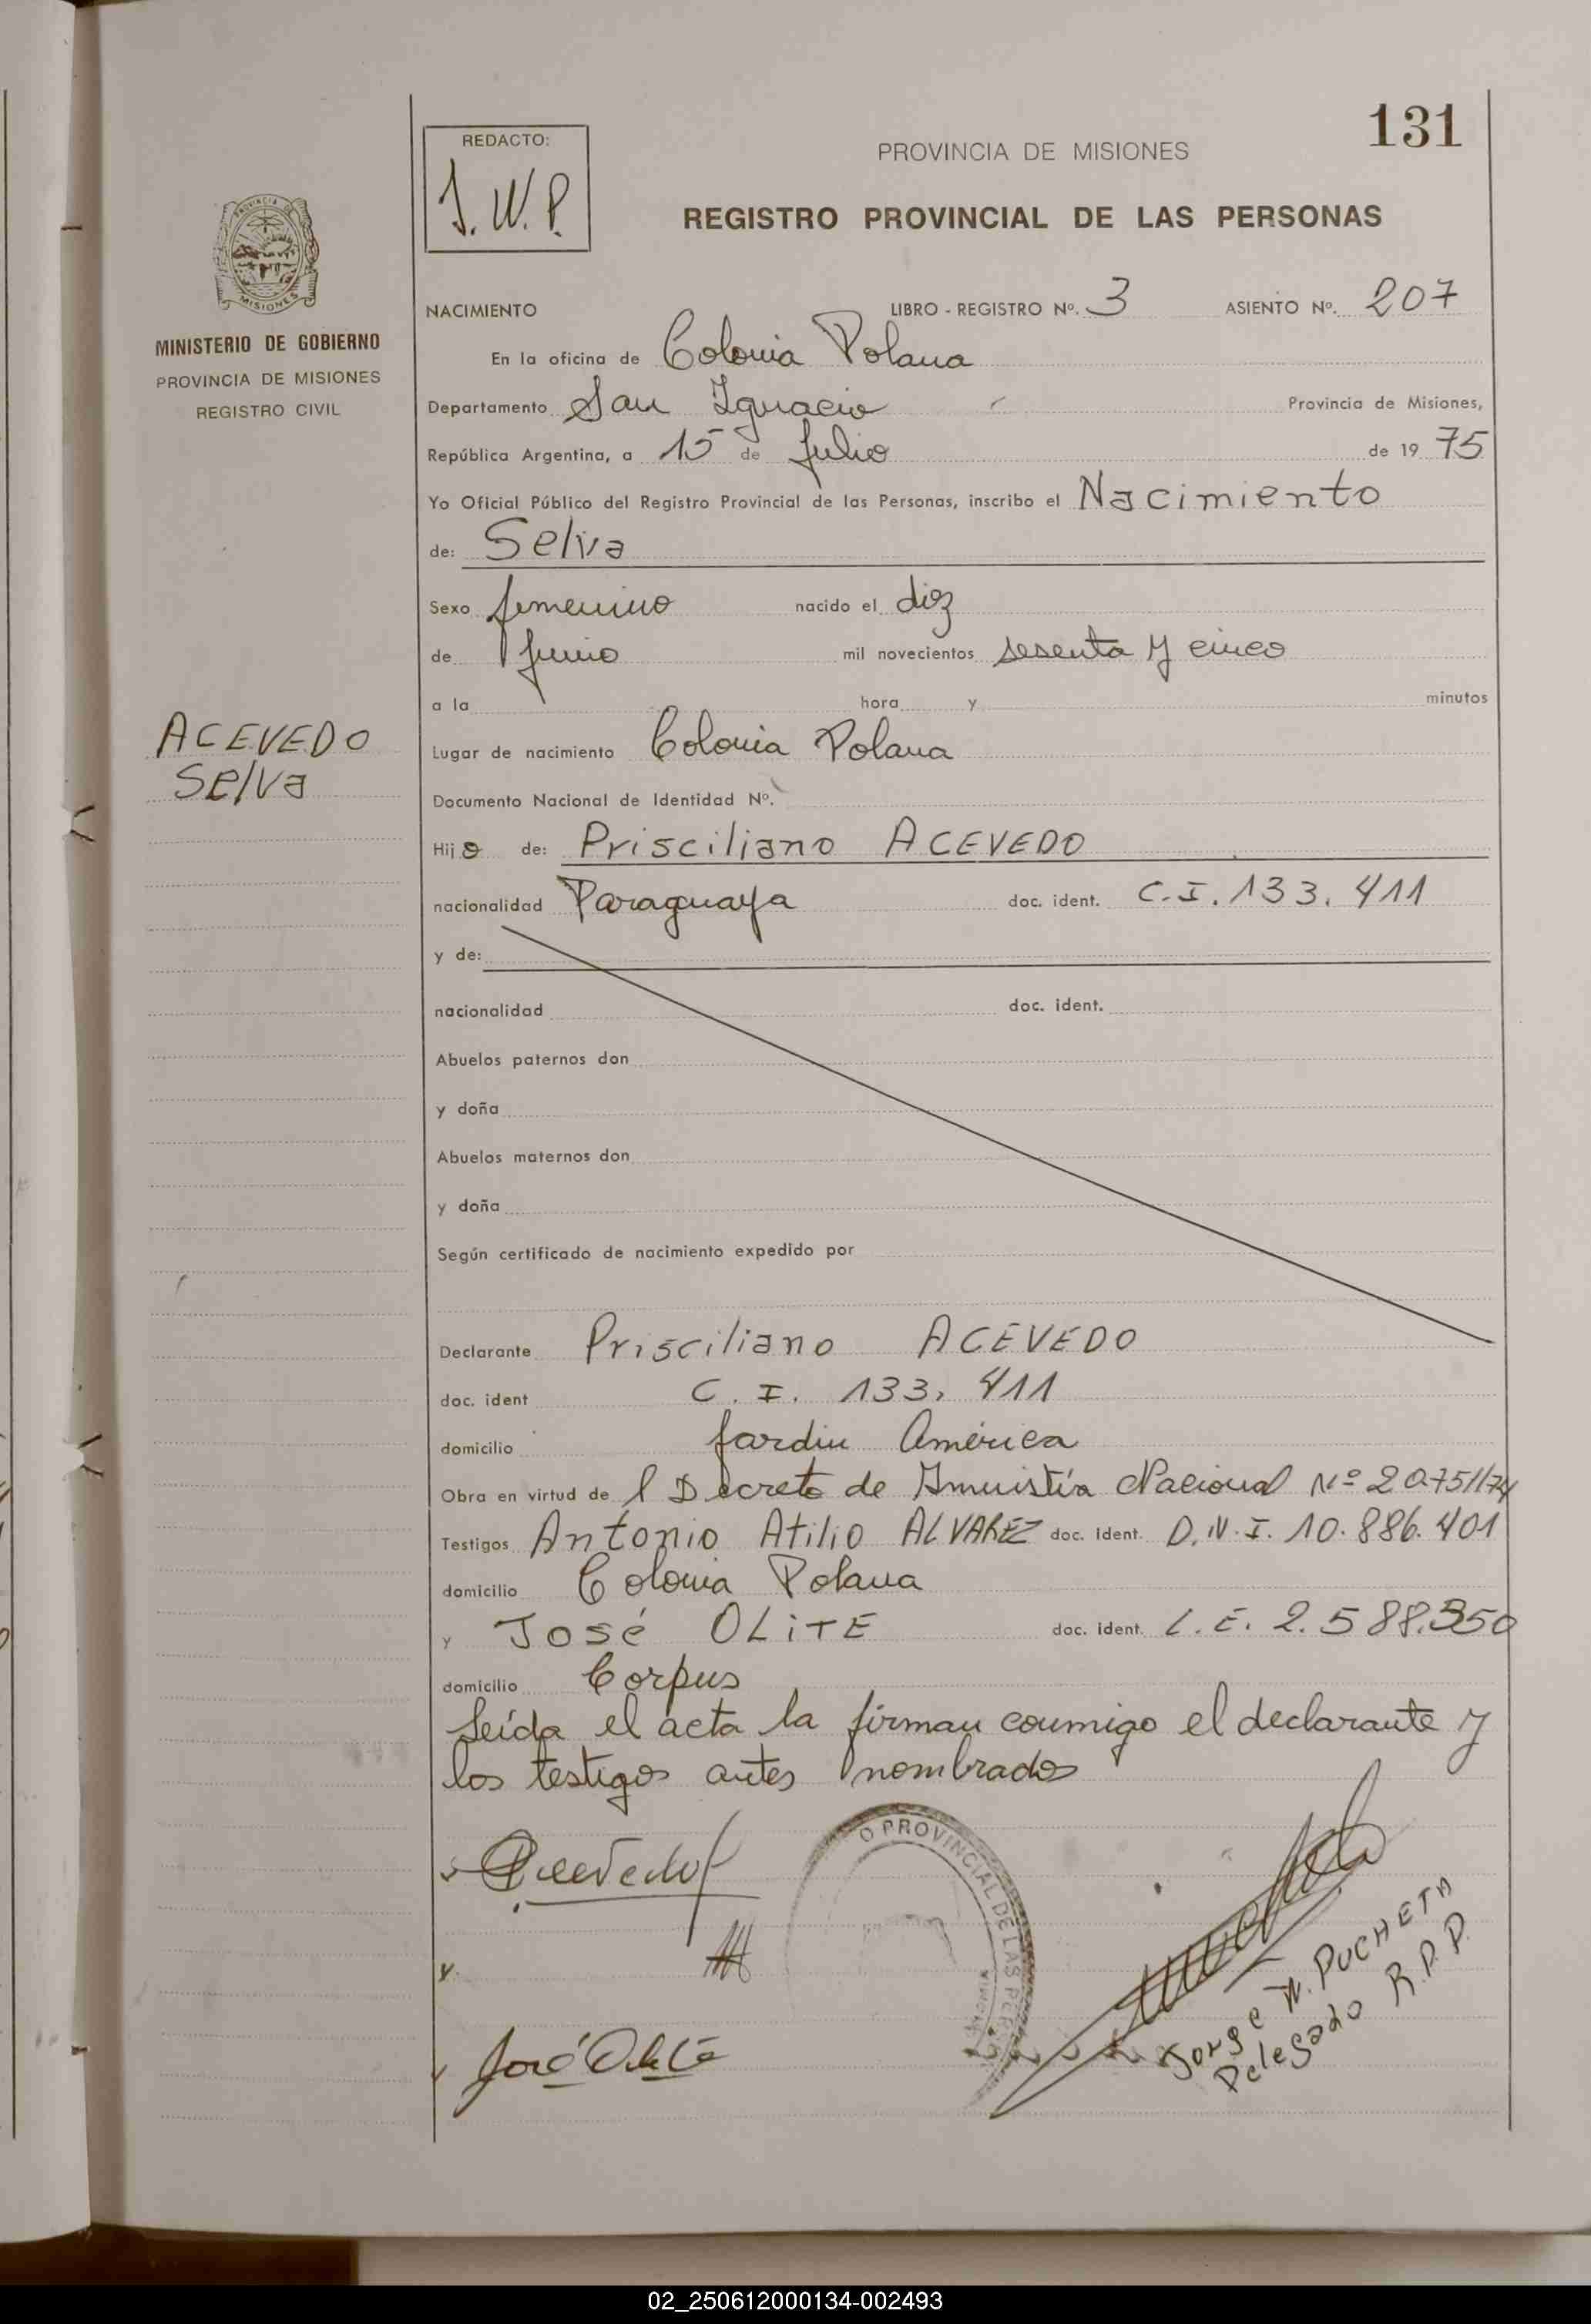 131
REDACTO:
J. W. P.
PROVINCIA DE MISIONES
REGISTRO PROVINCIAL DE LAS PERSONAS
PROVINCIA DE
MISIONES
MINISTERIO DE GOBIERNO
PROVINCIA DE MISIONES
REGISTRO CIVIL
ACEVEDO
Selva
NACIMIENTO LIBRO - REGISTRO Nº. 3 ASIENTO Nº. 207
En la oficina de Colonia Polana
Departamento San Ignacio Provincia de Misiones,
República Argentina, a 15 de Julio de 19 75
Yo Oficial Público del Registro Provincial de las Personas, inscribo el Nacimiento
de: Selva
Sexo femenino nacido el diez
de Junio mil novecientos sesenta y cinco
a la hora y minutos
Lugar de nacimiento Colonia Polana
Documento Nacional de Identidad Nº.
Hijo de: Prisciliano ACEVEDO
nacionalidad Paraguaya doc. ident. C.I. 133.411
y de:
nacionalidad doc. ident.
Abuelos paternos don
y doña
Abuelos maternos don
y doña
Según certificado de nacimiento expedido por
Declarante Prisciliano ACEVEDO
doc. ident C. I. 133. 411
domicilio Jardin América
Obra en virtud de l Decreto de Amnistía Nacional Nº 20751/74
Testigos Antonio Atilio ALVAREZ doc. Ident. D.N.I. 10.886.401
domicilio Colonia Polana
y José OLiTE doc. ident. L.E. 2.588.350
domicilio Corpus
Leída el acta la firman conmigo el declarante y
los testigos antes nombrados
Acevedo
O PROVINCIAL DE LAS PERSO
José Olite
Jorge W. PUCHETA
Delegado R.P.P.
02_250612000134-002493